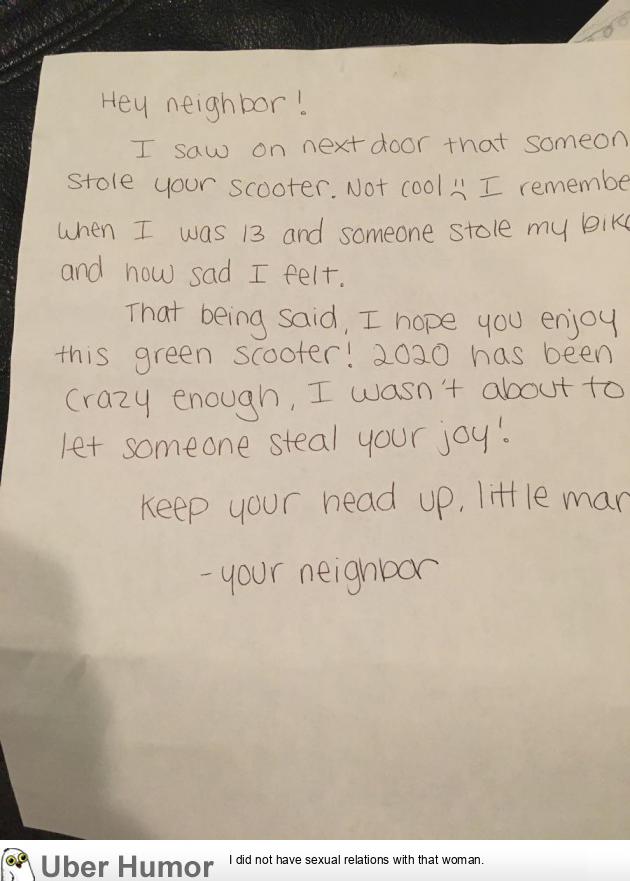 Hey neighbor!
I saw on next door that someon
stole your scooter. Not cool :( I remembe
when I was 13 and someone stole my bike
and how sad I felt.
That being said, I hope you enjoy
this green scooter! 2020 has been
crazy enough, I wasn't about to
let someone steal your joy!
Keep your head up, little man
- your neighbor
Uber Humor
I did not have sexual relations with that woman.